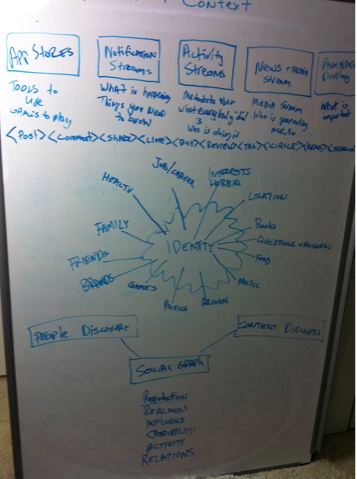 CONTEXT
App Stores
TOOLS to
USE
GAMES to play
Notification
Streams
WHAT is happening
Things you need
to know
Activity
Streams
what everybody did/
who is doing it
News + Media
Stream
Media Stream
who is generating
What is
important
<POST> <Comment> <SHARE> <LIKE> <BUY> <REVIEW> <TAG> <CIRCLE> <READ>
HEALTH
JOB/CAREER
INTERESTS
HOBBIES
LOCATION
BOOKS
FOOD
MUSIC
IDENTITY
FAMILY
FRIENDS
BRANDS
GAMES
PEOPLE DISCOVERY
CONTENT DISCOVERY
SOCIAL GRAPH
Reputation
REALNESS
INFLUENCE
CREDIBILITY
ACTIVITY
RELATIONS